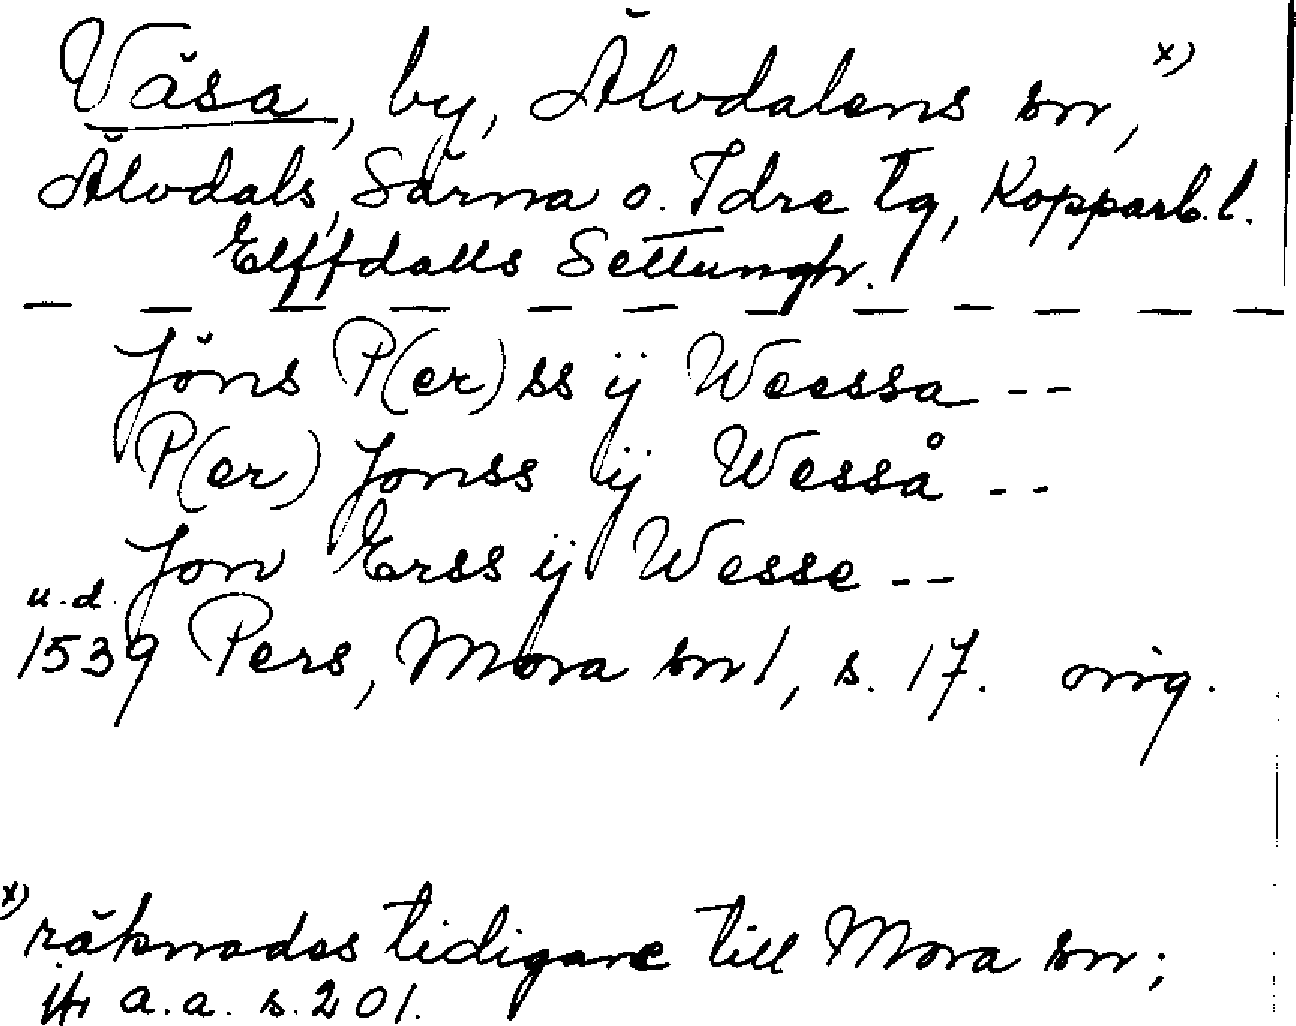 Väsa, by, Älvdalens sn, x)
Älvdals, Särna o. Idre tg, Kopparb. l.
Elffdalls Settungh.
Jöns P(er)ss ij Weessa --
P(er) Jonss ij Wesså --
Jon Erss ij Wesse --
u.d.
1539 Pers, Mora sn 1, s. 17. orig.
x) räknades tidigare till Mora sn;
jfr a.a. s. 201.